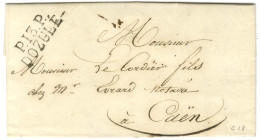 P.13.P.
DOZULÉ
Monsieur
Monsieur Le Cordier fils
chez Mr Evrard Notaire
à Caën